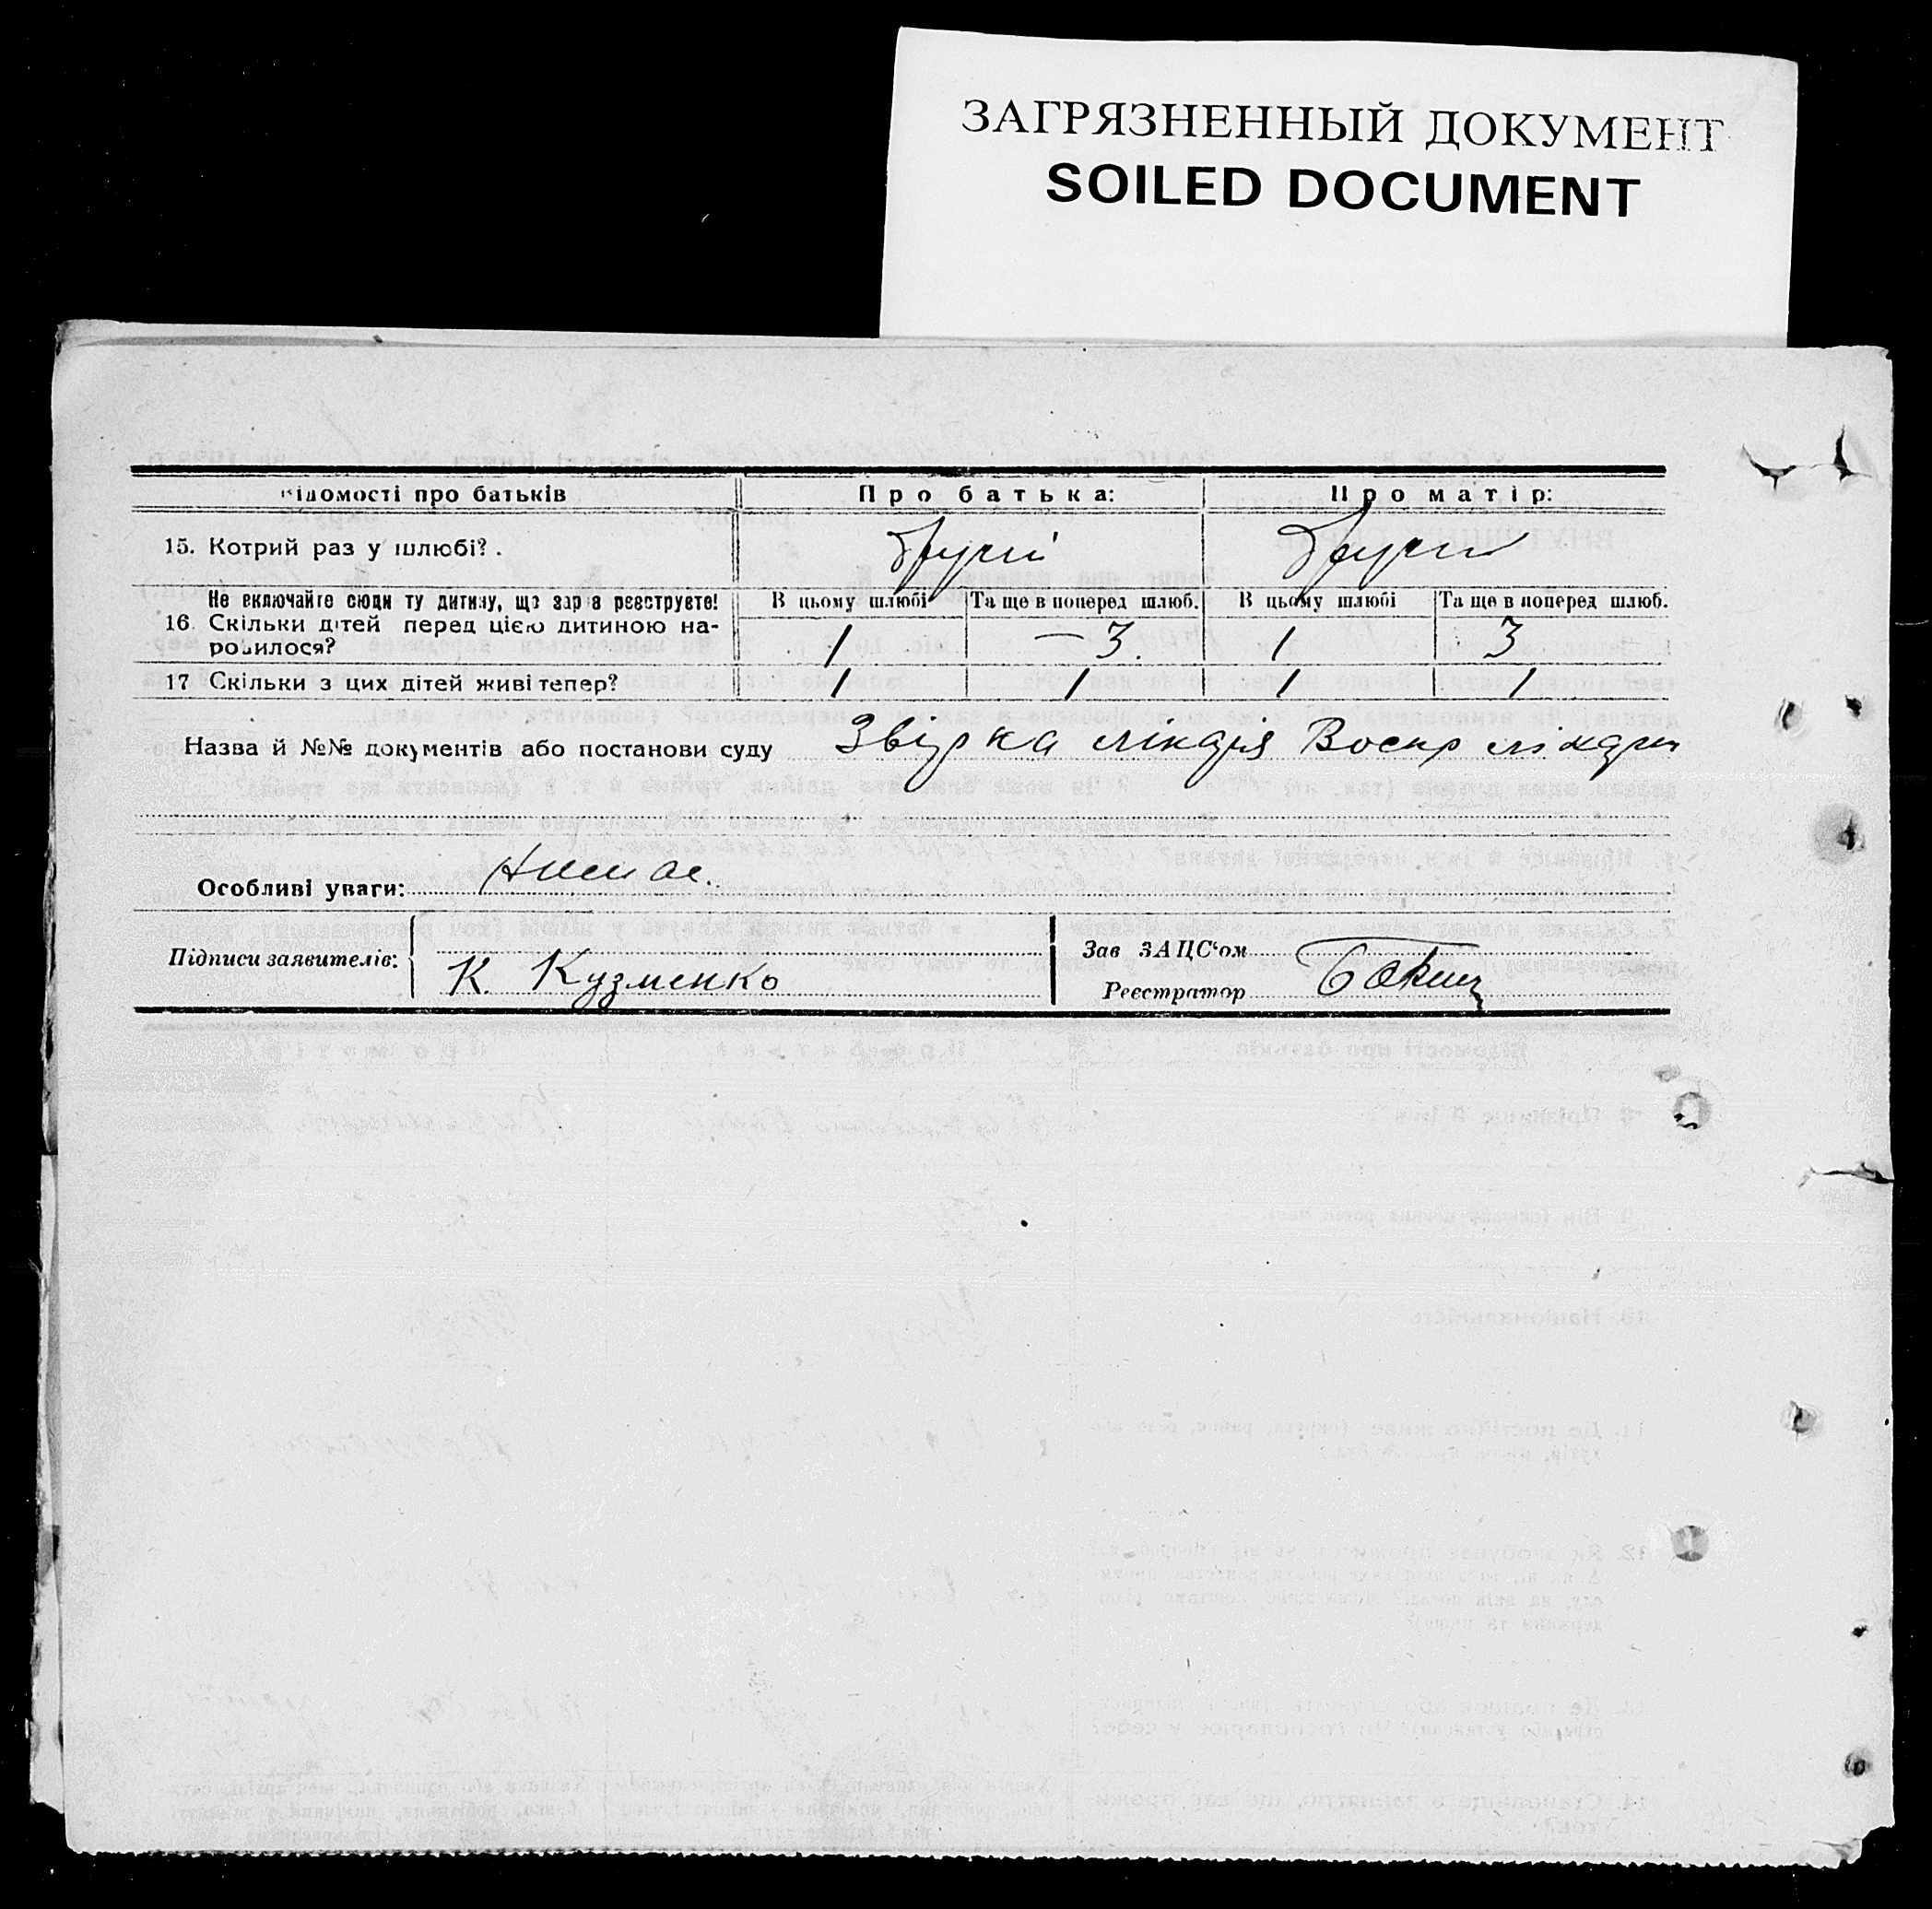 ЗАГРЯЗНЕННЫЙ ДОКУМЕНТ
SOILED DOCUMENT
Відомості про батьків Про батька: Про матір:
15. Котрий раз у шлюбі? Другий Другий
Не включайте сюди ту дитину, що зараз реєструєте! В цьому шлюбі Та ще в поперед шлюб. В цьому шлюбі Та ще в поперед шлюб.
16. Скільки дітей перед цією дитиною на-
родилося? 1 — 3. 1 3
17 Скільки з цих дітей живі тепер? 1 1 1 1
Назва й №№ документів або постанови суду
Особливі уваги: Немає.
Підписи заявителів: Зав ЗАЦС‘ом
К. Кузменко Реєстратор